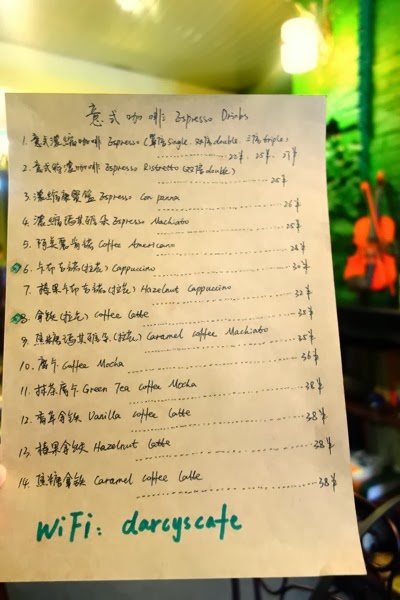 意式咖啡 Espresso Drinks
1. 意式浓缩咖啡 Espresso (单倍single. 双倍double. 三倍triple)
22¥. 25¥. 27¥
2. 意式特浓咖啡 Espresso Ristretto (双倍double)
25¥
3. 浓缩康宝蓝 Espresso Con panna
26¥
4. 浓缩玛其雅朵 Espresso Machiato
25¥
5. 阿美 Coffee Americano
28¥
6. 卡布 (拉花) Cappuccino
30¥
7. 榛果卡布 (拉花) Hazelnut Cappuccino
32¥
8. 拿铁 (拉花) Coffee Latte
35¥
9. 焦糖玛其雅朵 (拉花) Caramel coffee Machiato
35¥
10. 摩卡 Coffee Mocha
36¥
11. 抹茶摩卡 Green Tea Coffee Mocha
38¥
12. 香草拿铁 Vanilla Coffee Latte
38¥
13. 榛果拿铁 Hazelnut Latte
38¥
14. 焦糖拿铁 Caramel Coffee Latte
38¥
WiFi: darcyscafe